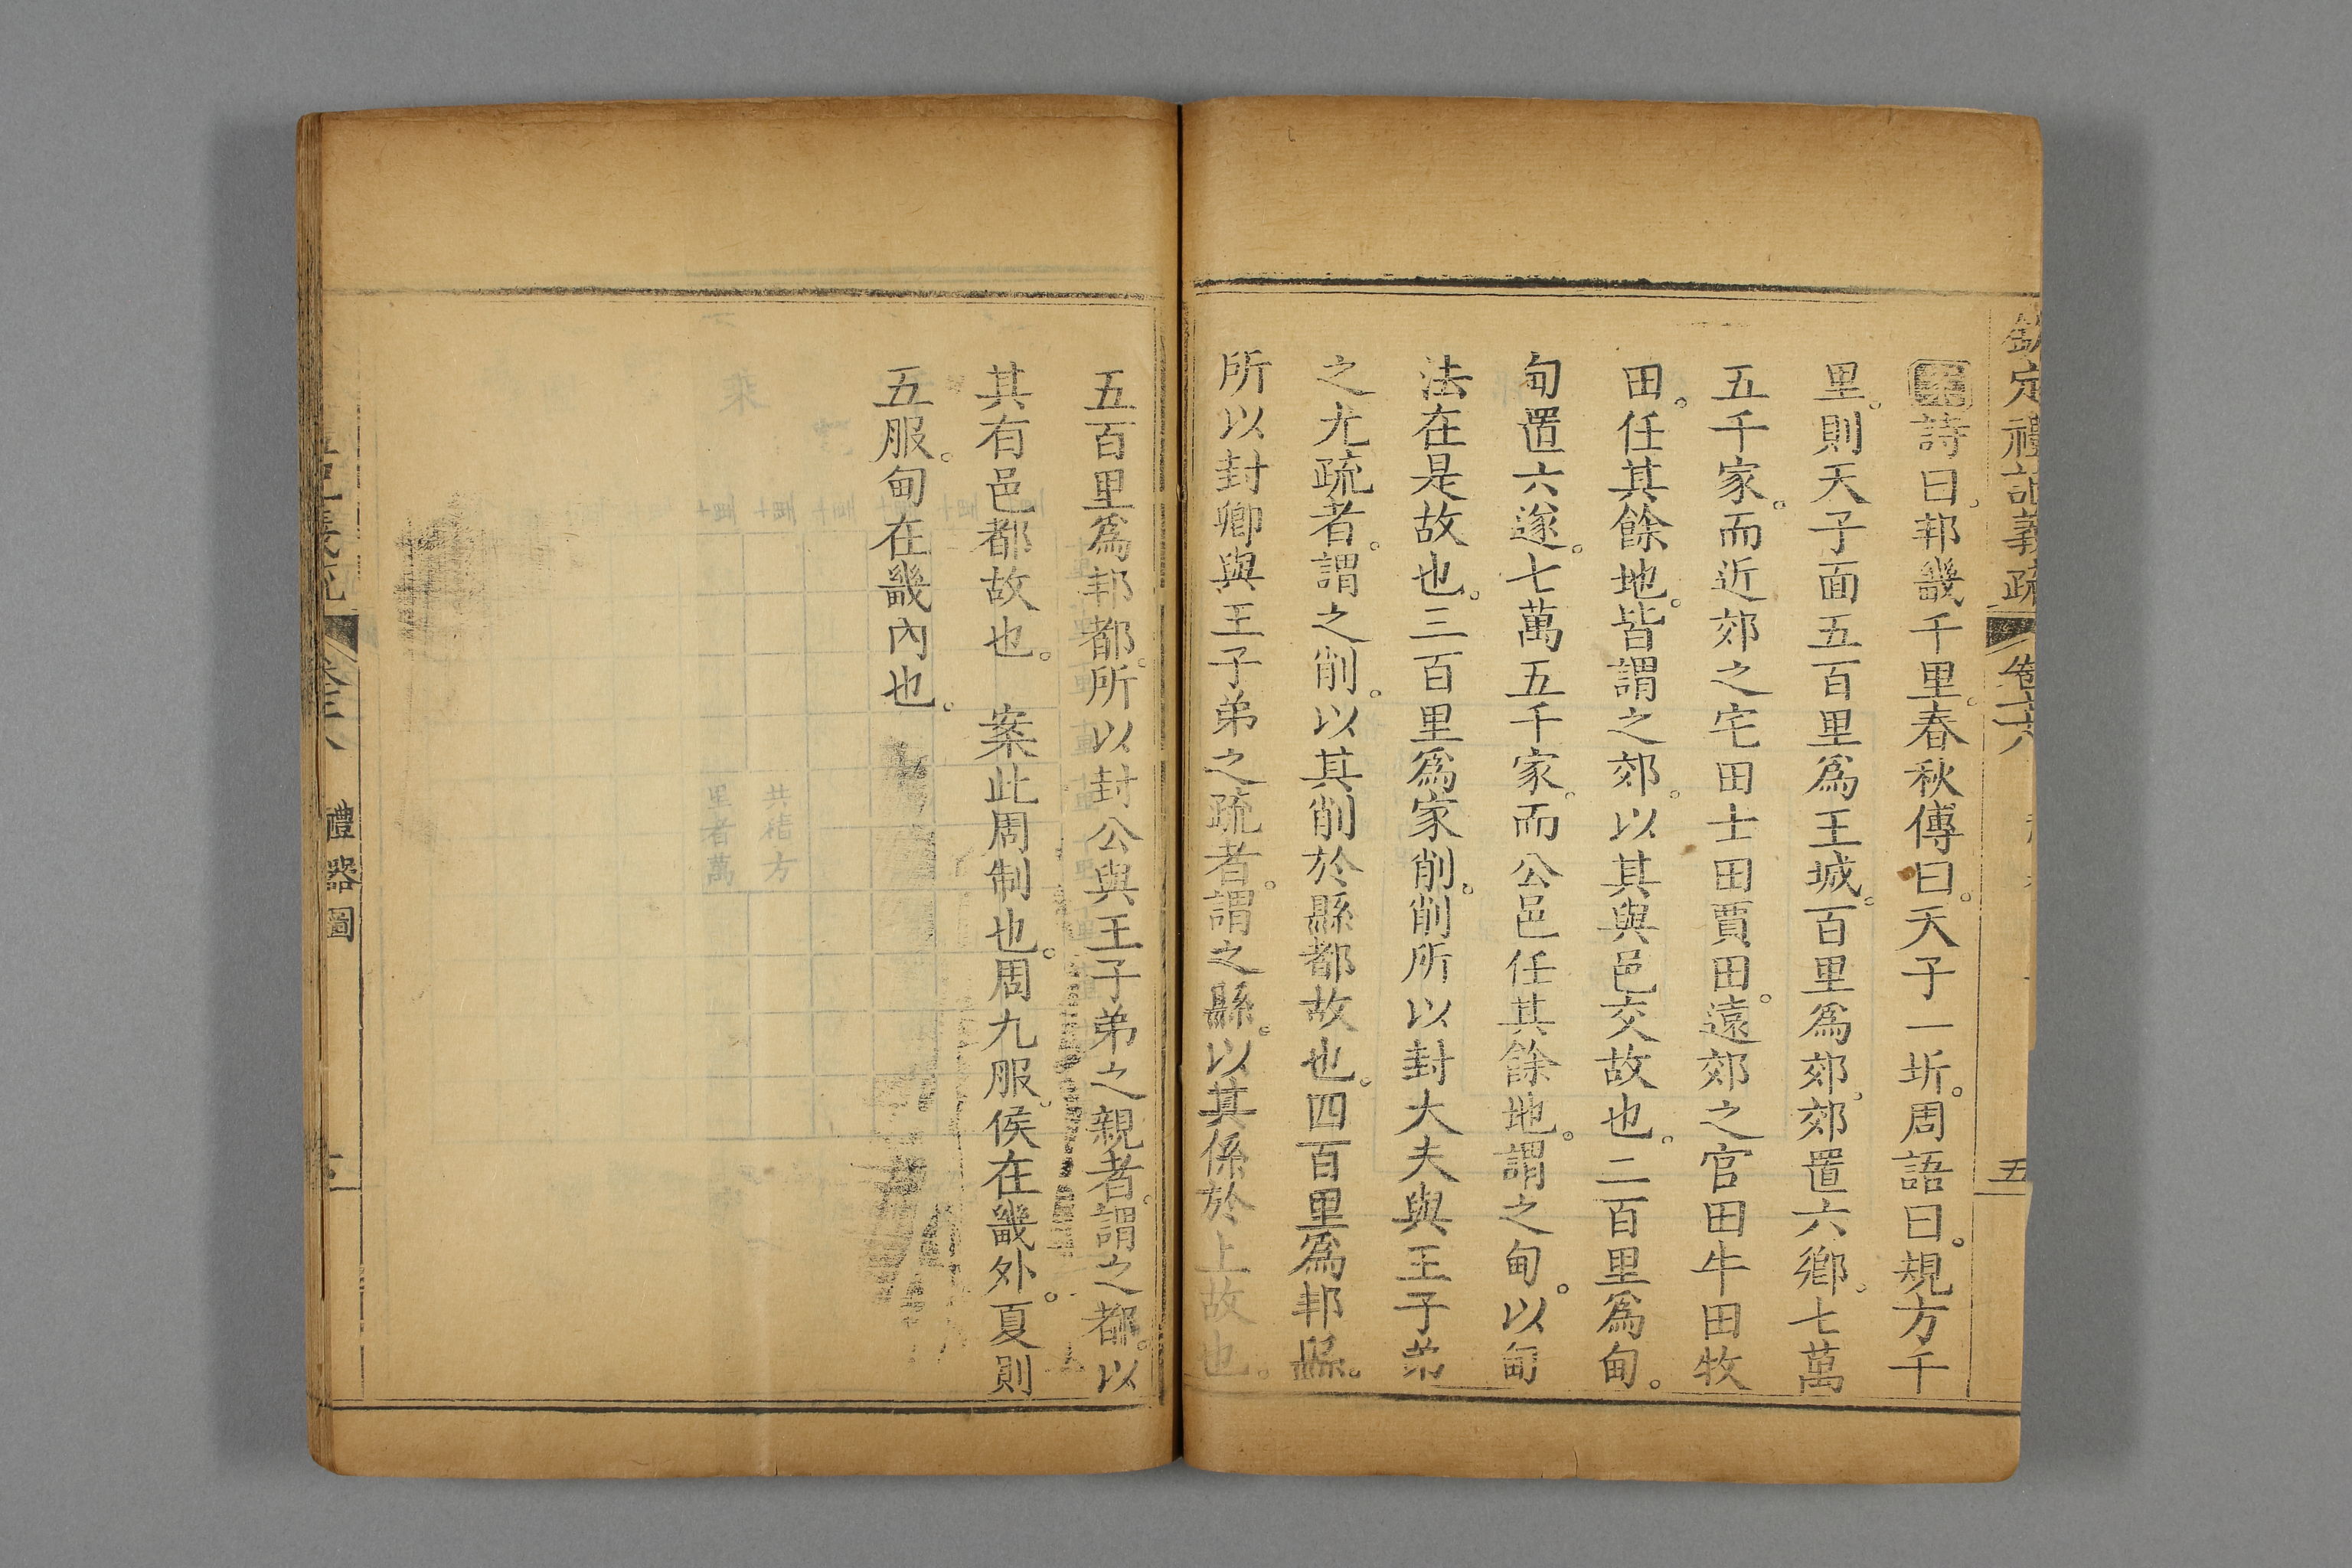 欽定禮記義疏 卷
五
詩曰。邦畿千里。春秋傳曰。天子一圻。周語曰。規方千
里。則天子面五百里爲王城。百里爲郊。郊置六鄉。七萬
五千家。而近郊之宅田士田賈田。遠郊之官田牛田牧
田。任其餘地。皆謂之郊。以其與邑交故也。二百里爲甸。
甸置六遂。七萬五千家。而公邑任其餘地。謂之甸。以甸
法在是故也。三百里爲家削。削所以封大夫與王子弟
之尤疏者。謂之削。以其削於縣都故也。四百里爲邦縣。
所以封卿與王子弟之疏者。謂之縣。以其係於上故也。
五百里爲邦都。所以封公與王子弟之親者。謂之都。以
其有邑都故也。 案此周制也。周九服。侯在畿外。夏則
五服。甸在畿內也。
禮器圖